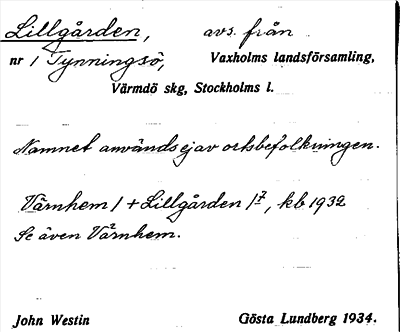 Lillgården, avs. från
nr 1 Tynningsö, Vaxholms landsförsamling,
Värmdö skg, Stockholms l.
Namnet används ej av ortsbefolkningen.
Värnhem / + Lillgården 1⁷, kb 1932
Se även Värnhem.
John Westin Gösta Lundberg 1934.